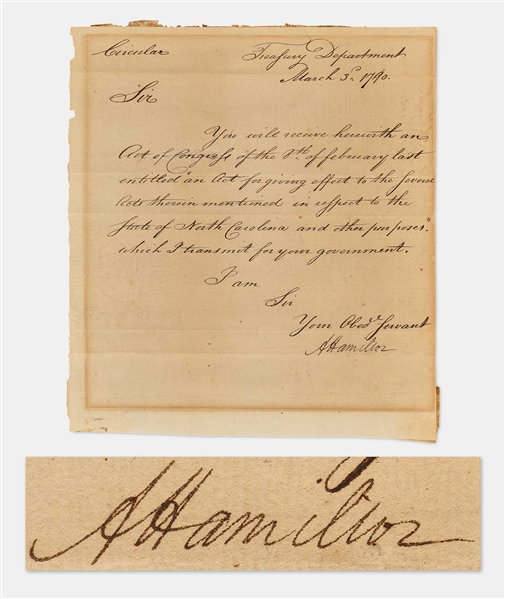 Circular
Treasury Department
March 3d. 1790.
Sir
You will receive herewith an
Act of Congress of the 8th. of february last
entitled "an Act for giving effect to the several
Acts therein mentioned in respect to the
State of North Carolina and other purposes",
which I transmit for your government.
I am
Sir
Your Obedt. Servant
AHamilton
AHamilton